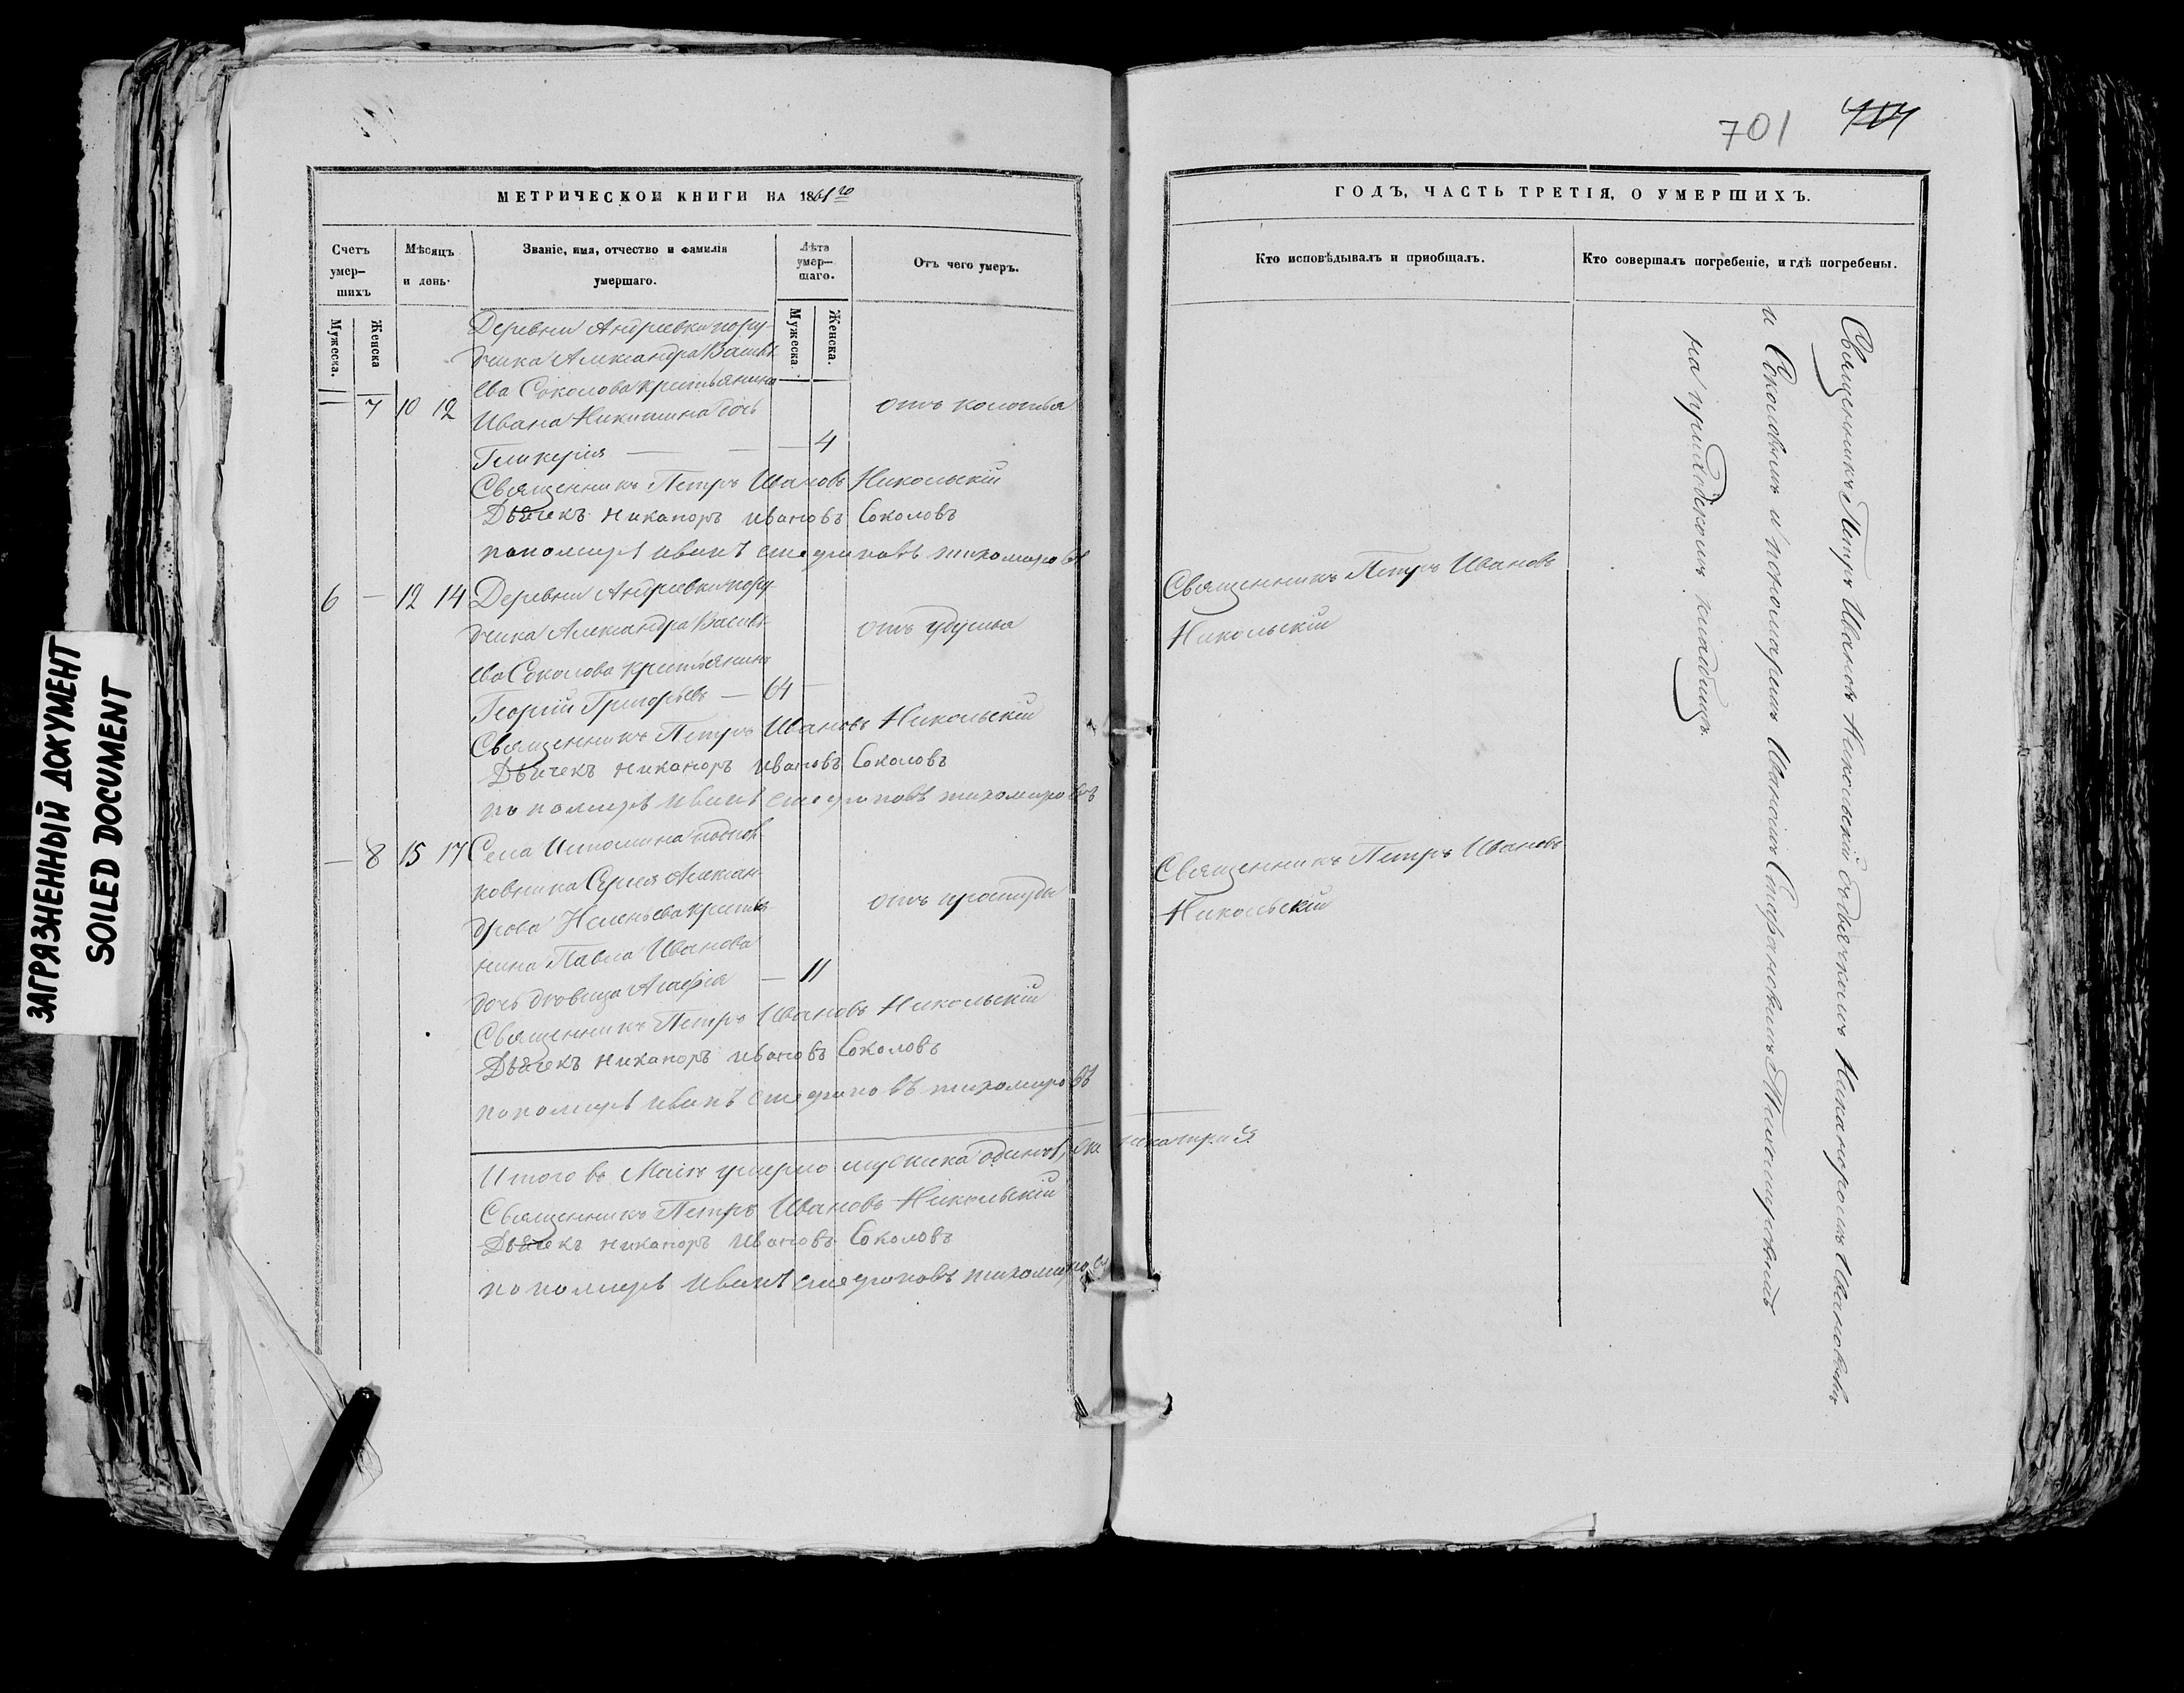 701 414
МЕТРИЧЕСКОЙ КНИГИ НА 1861го
ГОДЪ, ЧАСТЬ ТРЕТІЯ, О УМЕРШИХЪ.
Счетъ умер-шихъ
Мужеска.
Женска
Мѣсяцъ и день.
Званіе, имя, отчество и фамилія умершаго.
Лѣта умер-шаго.
Мужеска.
Женска.
Отъ чего умеръ.
Кто исповѣдывалъ и приобщалъ.
Кто совершалъ погребеніе, и гдѣ погребены.
Деревни Андреевки пору-
чика Александра Василь-
ева Соколова крестьянина
— 7 10 12 Ивана Никитина дочь отъ колотья
Гликерія — — — 4
Священникъ Петръ Ивановъ Никольскій
Дьячекъ Никаноръ Ивановъ Соколовъ
пономарь Иванъ Стефановъ Тихомировъ
6 — 12 14 Деревни Андреевки пору- Священникъ Петръ Ивановъ
чика Александра Василь- отъ удушья Никольскій
ева Соколова крестьянинъ
Георгій Григорьевъ — 64 —
Священникъ Петръ Ивановъ Никольскій
Дьячекъ Никаноръ Ивановъ Соколовъ
пономарь Иванъ Стефановъ Тихомировъ
— 8 15 17 Села подпол- Священникъ Петръ Ивановъ
ковника Сергія Алексан- отъ простуды Никольскій
дрова крестья-
нина Павла Иванова
дочь дѣвица Агафія — 11
Священникъ Петръ Ивановъ Никольскій
Дьячекъ Никаноръ Ивановъ Соколовъ
пономарь Иванъ Стефановъ Тихомировъ
Итого въ Маіѣ умерло мужеска одинъ 1, женска три 3.
Священникъ Петръ Ивановъ Никольскій
Дьячекъ Никаноръ Ивановъ Соколовъ
пономарь Иванъ Стефановъ Тихомировъ
Священникъ Петръ Ивановъ Никольскій съ дьячкомъ Никаноромъ Ивановымъ
и Соколовымъ и пономаремъ Иваномъ Стефановымъ Тихомировымъ
на приходскомъ кладбищѣ.
ЗАГРЯЗНЕННЫЙ ДОКУМЕНТ
SOILED DOCUMENT